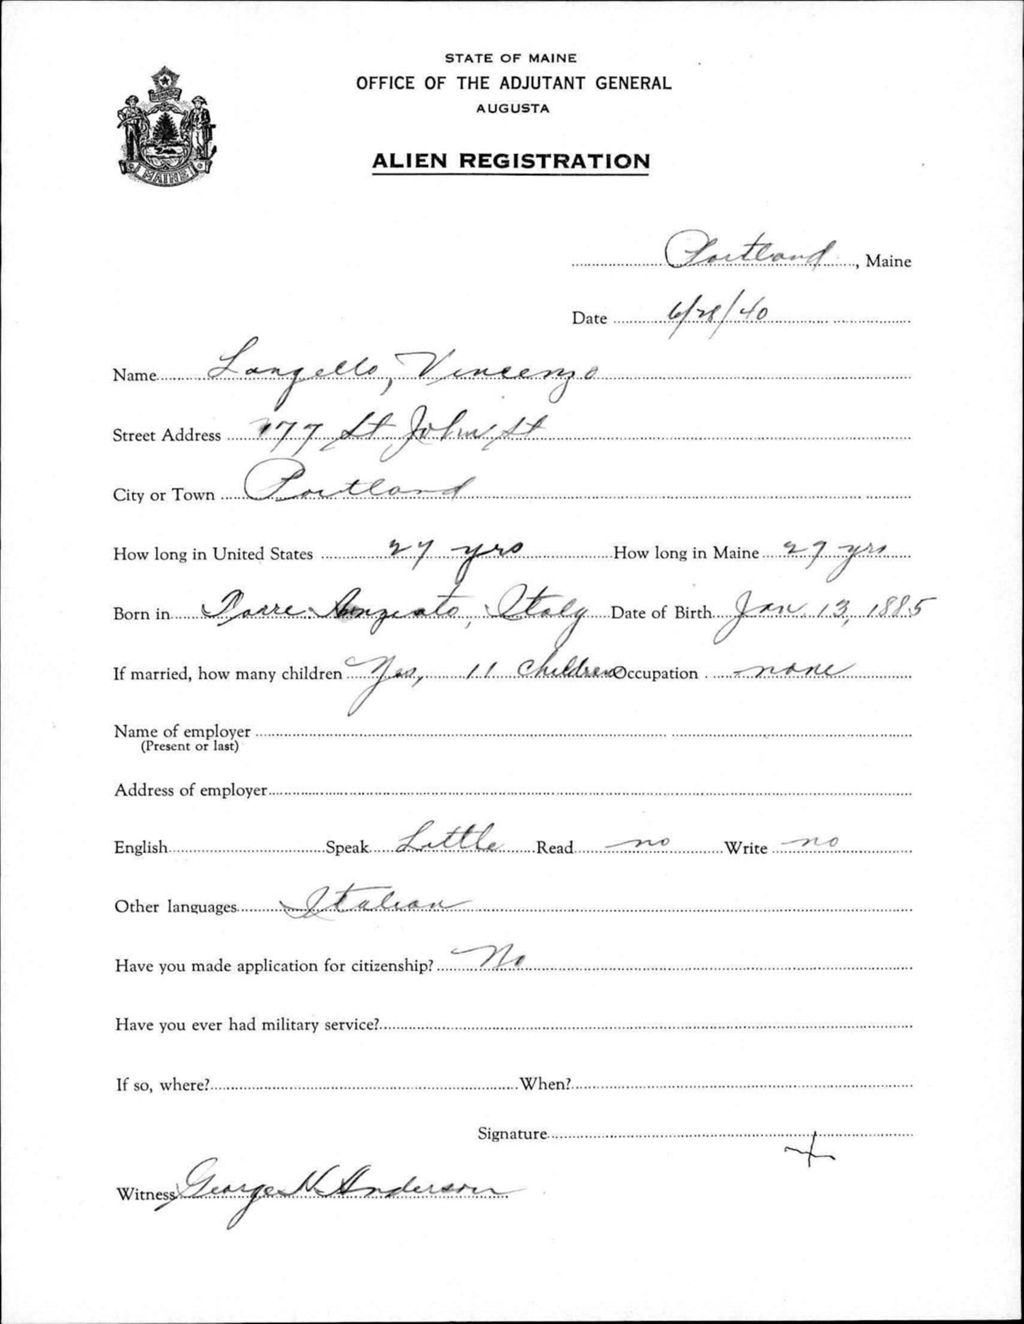 STATE OF MAINE
OFFICE OF THE ADJUTANT GENERAL
AUGUSTA
ALIEN REGISTRATION
MAINE
Portland, Maine
Date 6/28/40
Name Langello, Vincenzo
Street Address 177 St John St
City or Town Portland
How long in United States 27 yrs How long in Maine 27 yrs
Born in Italy Date of Birth Jan 13, 1885
If married, how many children Yes, 11 children Occupation none
Name of employer
(Present or last)
Address of employer
English Speak Little Read no Write no
Other languages Italian
Have you made application for citizenship? No
Have you ever had military service?
If so, where? When?
Signature
Witness George N. Anderson